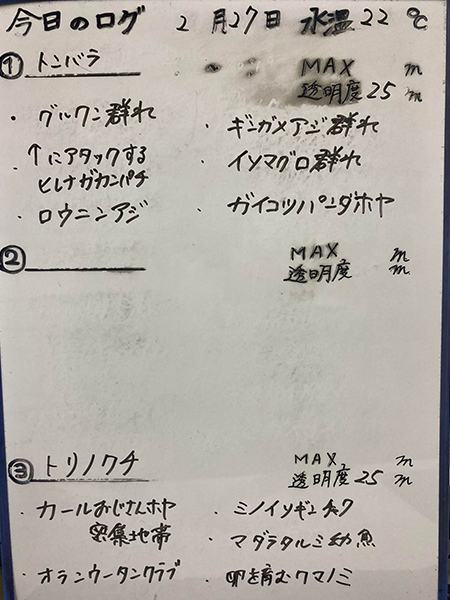 今日のログ 2月27日 水温22℃
① トンバラ MAX m
透明度25m
・グルクン群れ ・ギンガメアジ群れ
・↑にアタックする ・イソマグロ群れ
ヒレナガカンパチ
・ロウニンアジ ・ガイコツパンダホヤ
② MAX m
透明度 m
③ トリノクチ MAX m
透明度25m
・カールおじさんホヤ ・ミノイソギンチャク
密集地帯 ・マダラタルミ幼魚
・オランウータンクラブ ・卵を育むクマノミ